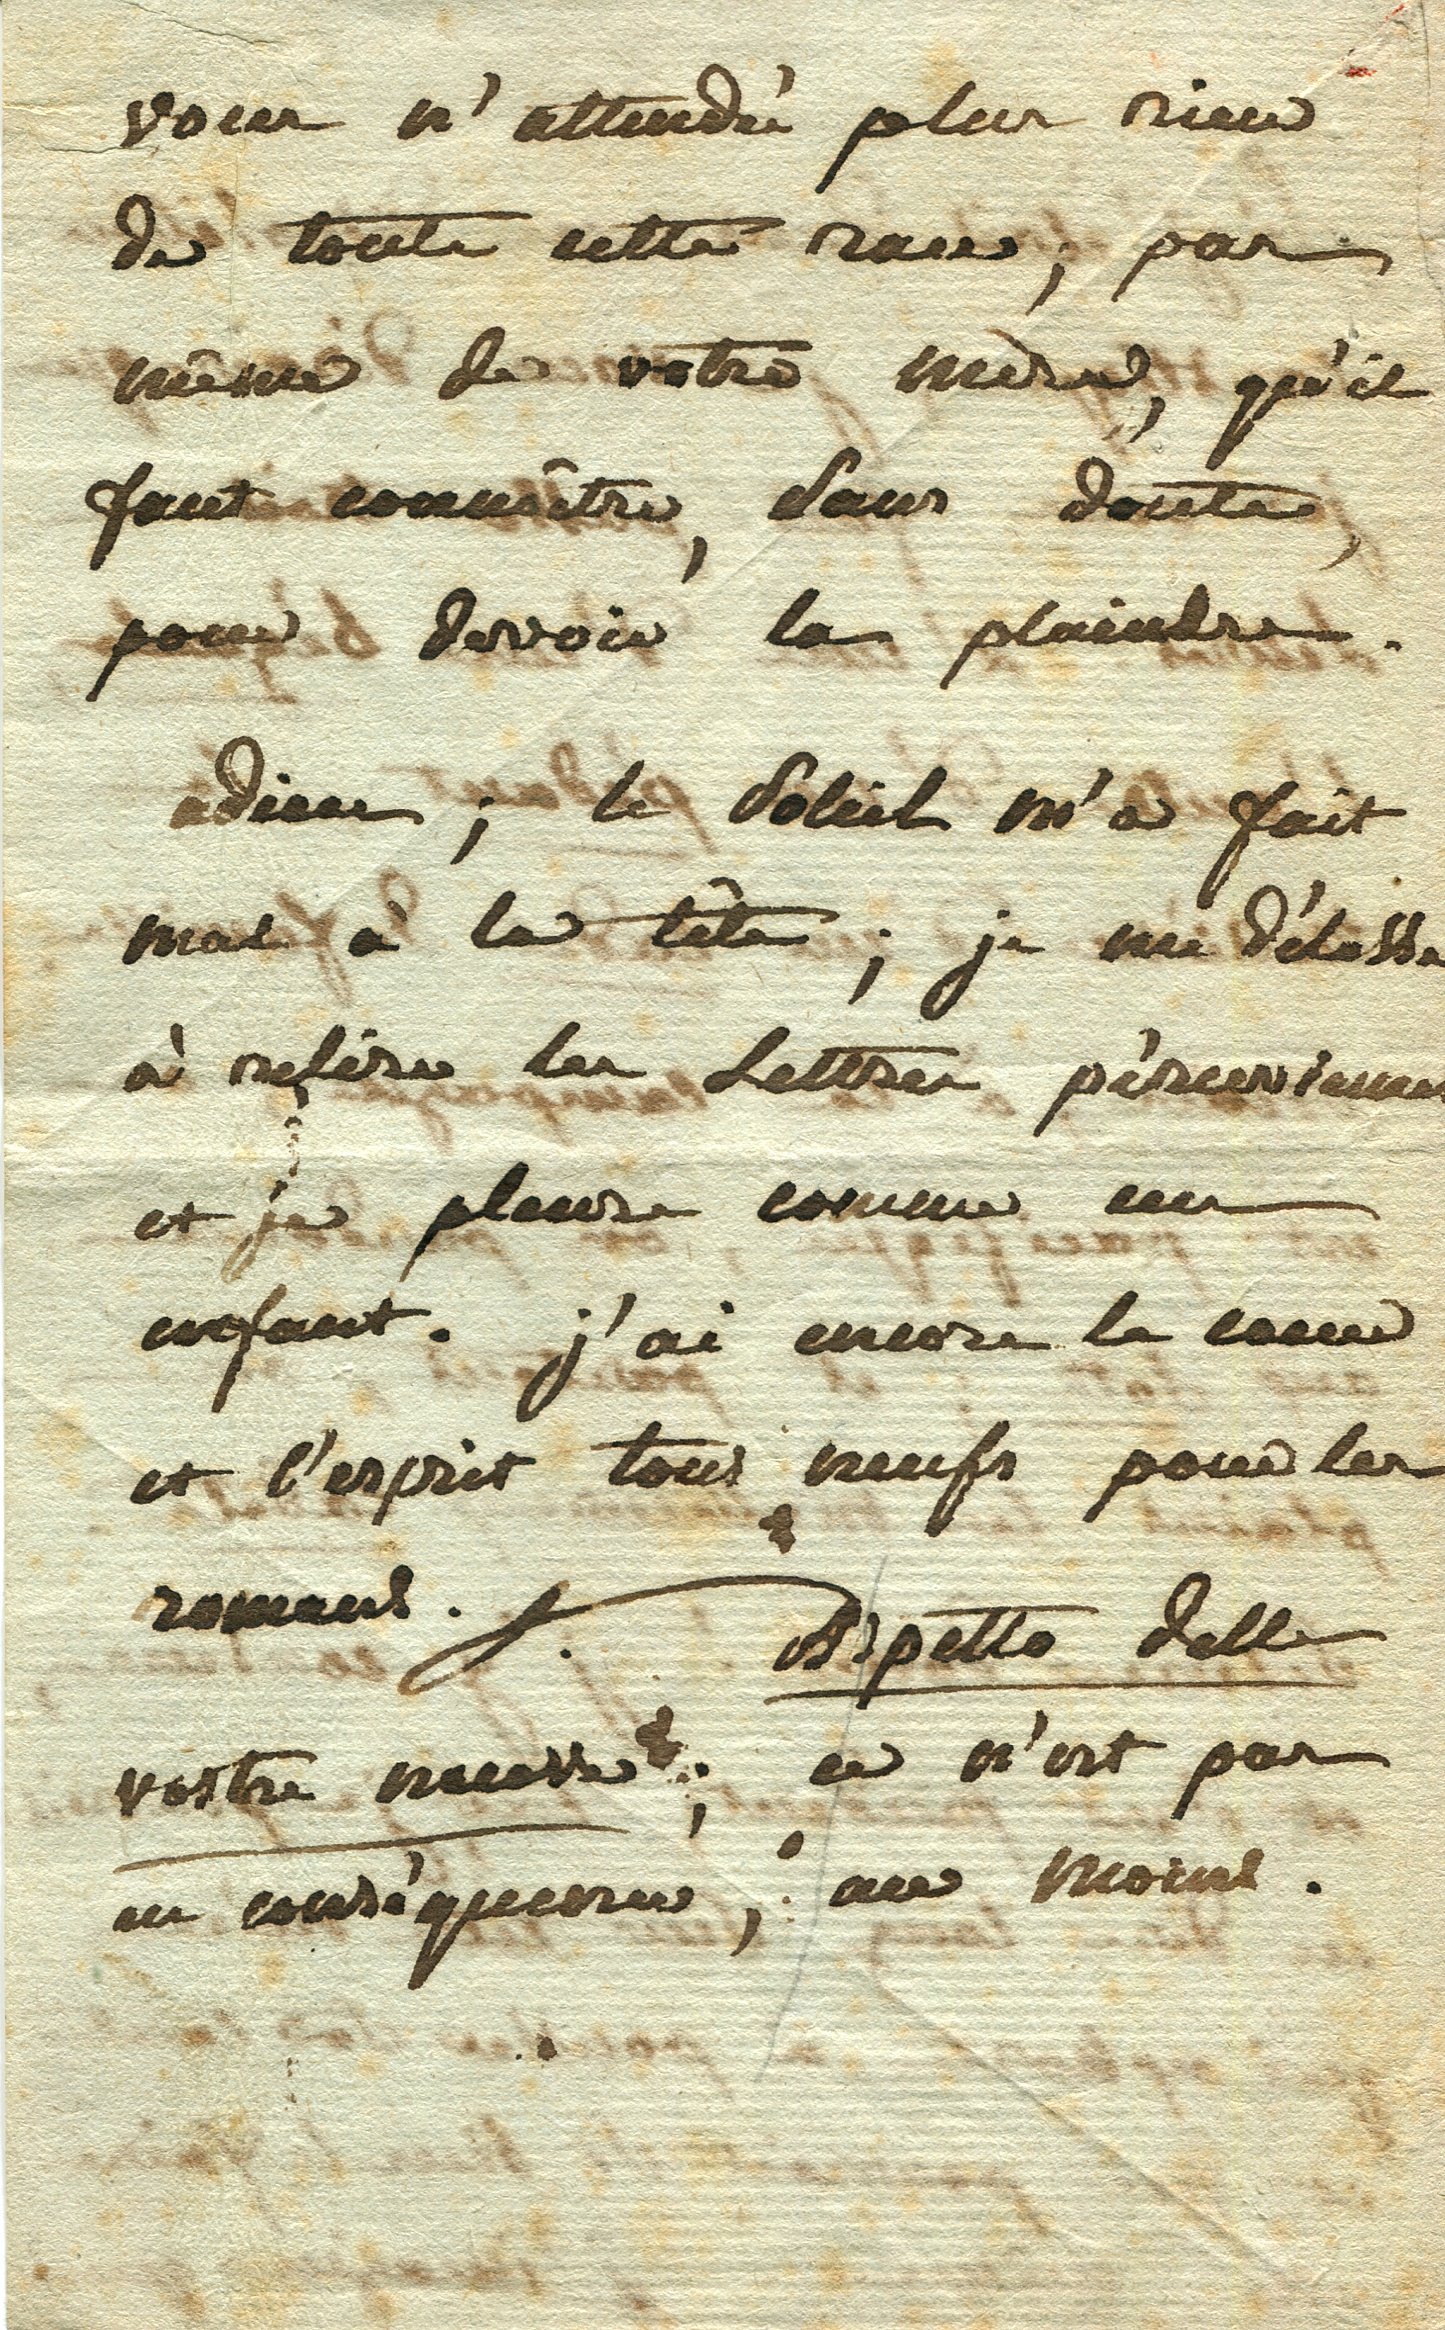 vous n'attendés plus rien
de toute cette race; pas
même de votre mère, qu'il
faut connoître, sans doute,
pour devoir la plaindre.
adieu; le soleil m'a fait
mal à la tête; je me délasse
à relire les Lettres péruviennes
et je pleure comme un
enfant. j'ai encore le coeur
et l'esprit tous neufs pour les
romans. Aspetto delle
vostre nuove; ce n'est pas
en conséquence, au moins.